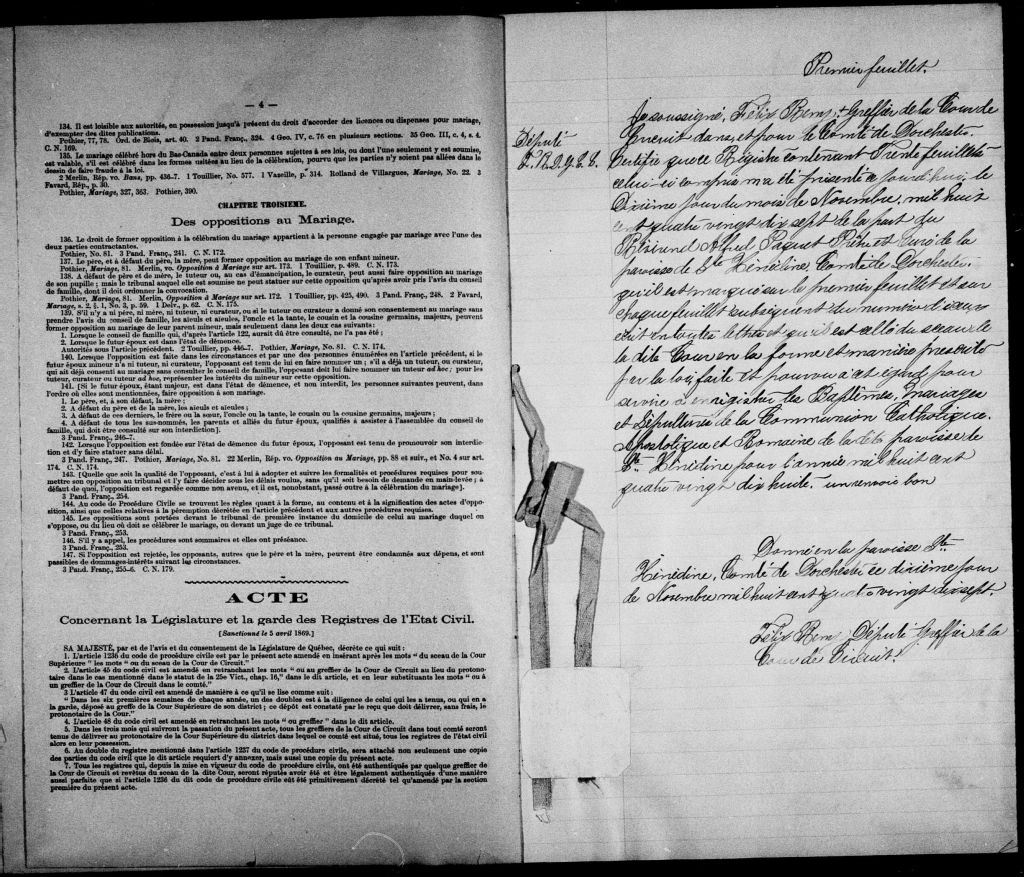 — 4 —
134. Il est loisible aux autorités, en possession jusqu'à présent du droit d'accorder des licences ou dispenses pour mariage,
d'exempter des dites publications.
Pothier, 77, 78. Ord. de Blois, art. 40. 2 Pand. Franç., 324. 4 Geo. IV, c. 76 en plusieurs sections. 35 Geo. III, c. 4, s. 4.
C. N. 169.
135. Le mariage célébré hors du Bas-Canada entre deux personnes sujettes à ses lois, ou dont l'une seulement y est soumise,
est valable, s'il est célébré dans les formes usitées au lieu de la célébration, pourvu que les parties n'y soient pas allées dans le
dessin de faire fraude à la loi.
2 Merlin, Rép. vo. Bans, pp. 436-7. 1 Touillier, No. 577. 1 Vazeille, p. 314. Rolland de Villargues, Mariage, No. 22. 3
Favard, Rép., p. 30.
Pothier, Mariage, 327, 363. Pothier, 390.
CHAPITRE TROISIEME.
Des oppositions au Mariage.
136. Le droit de former opposition à la célébration du mariage appartient à la personne engagée par mariage avec l'une des
deux parties contractantes.
Pothier, No. 81. 3 Pand. Franç., 241. C. N. 172.
137. Le père, et à défaut du père, la mère, peut former opposition au mariage de son enfant mineur.
Pothier, Mariage, 81. Merlin, vo. Opposition à Mariage sur art. 173. 1 Touillier, p. 489. C. N. 173.
138. A défaut de père et de mère, le tuteur ou, au cas d'émancipation, le curateur, peut aussi faire opposition au mariage
de son pupille; mais le tribunal auquel elle est soumise ne peut statuer sur cette opposition qu'après avoir pris l'avis du conseil
de famille, dont il doit ordonner la convocation.
Pothier, Mariage, 81. Merlin, Opposition à Mariage sur art. 172. 1 Touillier, pp. 425, 490. 3 Pand. Franç., 248. 2 Favard,
Mariage, s. 2, § 1, No. 3, p. 59. 1 Delv., p. 62. C. N. 175.
139. S'il n'y a ni père, ni mère, ni tuteur, ni curateur, ou si le tuteur ou curateur a donné son consentement au mariage sans
prendre l'avis du conseil de famille, les aïeuls et aïeules, l'oncle et la tante, le cousin et la cousine germains, majeurs, peuvent
former opposition au mariage de leur parent mineur, mais seulement dans les deux cas suivants:
1. Lorsque le conseil de famille qui, d'après l'article 122, aurait dû être consulté, ne l'a pas été;
2. Lorsque le futur époux est dans l'état de démence.
Autorités sous l'article précédent. 2 Touillier, pp. 446-7. Pothier, Mariage, No. 81. C. N. 174.
140. Lorsque l'opposition est faite dans les circonstances et par une des personnes énumérées en l'article précédent, si le
futur époux mineur n'a ni tuteur, ni curateur, l'opposant est tenu de lui en faire nommer un; s'il a déjà un tuteur, ou curateur,
qui ait déjà consenti au mariage sans consulter le conseil de famille, l'opposant doit lui faire nommer un tuteur ad hoc; pour les
tuteur, curateur ou tuteur ad hoc, représenter les intérêts du mineur sur cette opposition.
141. [Si le futur époux, étant majeur, est dans l'état de démence, et non interdit, les personnes suivantes peuvent, dans
l'ordre où elles sont mentionnées, faire opposition à son mariage.
1. Le père, et, à son défaut, la mère;
2. A défaut du père et de la mère, les aïeuls et aïeules;
3. A défaut de ces derniers, le frère ou la sœur, l'oncle ou la tante, le cousin ou la cousine germains, majeurs;
4. A défaut de tous les sus-nommés, les parents et alliés du futur époux, qualifiés à assister à l'assemblée du conseil de
famille, qui doit être consulté sur son interdiction].
3 Pand. Franç., 246-7.
142. Lorsque l'opposition est fondée sur l'état de démence du futur époux, l'opposant est tenu de promouvoir son interdic-
tion et d'y faire statuer sans délai.
3 Pand. Franç., 247. Pothier, Mariage, No. 81. 22 Merlin, Rép. vo. Opposition au Mariage, pp 88 et suiv., et No. 4 sur art.
174. C. N. 174.
143. [Quelle que soit la qualité de l'opposant, c'est à lui à adopter et suivre les formalités et procédures requises pour sou-
mettre son opposition au tribunal et l'y faire décider sous les délais voulus, sans qu'il soit besoin de demande en main-levée; à
défaut de quoi, l'opposition est regardée comme non avenu, et il est, nonobstant, passé outre à la célébration du mariage].
3 Pand. Franç., 254.
144. Au code de Procédure Civile se trouvent les règles quant à la forme, au contenu et à la signification des actes d'oppo-
sition, ainsi que celles relatives à la péremption décrétée en l'article précédent et aux autres procédures requises.
145. Les oppositions sont portées devant le tribunal de première instance du domicile de celui au mariage duquel on
s'oppose, ou du lieu où doit se célébrer le mariage, ou devant un juge de ce tribunal.
3 Pand. Franç., 253.
146. S'il y a appel, les procédures sont sommaires et elles ont préséance.
3 Pand. Franç., 253.
147. Si l'opposition est rejetée, les opposants, autres que le père et la mère, peuvent être condamnés aux dépens, et sont
passibles de dommages-intérêts suivant les circonstances.
3 Pand. Franç., 255-6. C. N. 179.
ACTE
Concernant la Législature et la garde des Registres de l'Etat Civil.
[Sanctionné le 5 avril 1869.]
SA MAJESTÉ, par et de l'avis et du consentement de la Législature de Québec, décrète ce qui suit:
1. L'article 1236 du code de procédure civile est par le présent acte amendé en insérant après les mots "du sceau de la Cour
Supérieure" les mots "ou du sceau de la Cour de Circuit."
2. L'article 45 du code civil est amendé en retranchant les mots "ou au greffier de la Cour de Circuit au lieu du protono-
taire dans le cas mentionné dans le statut de la 25e Vict., chap. 16," dans le dit article, et en leur substituants les mots "ou à
un greffier de la Cour de Circuit dans le comté."
3 L'article 47 du code civil est amendé de manière à ce qu'il se lise comme suit:
"Dans les six premières semaines de chaque année, un des doubles est à la diligence de celui qui les a tenus, ou qui en a
la garde, déposé au greffe de la Cour Supérieure de son district; ce dépôt est constaté par le reçu que doit délivrer, sans frais, le
protonotaire de la Cour."
4. L'article 48 du code civil est amendé en retranchant les mots "ou greffier" dans le dit article.
5. Dans les trois mois qui suivront la passation du présent acte, tous les greffiers de la Cour de Circuit dans tout comté seront
tenus de délivrer au protonotaire de la Cour Supérieure du district dans lequel ce comté est situé, tous les registres de l'état civil
alors en leur possession.
6. Au double du registre mentionné dans l'article 1237 du code de procédure civile, sera attaché non seulement une copie
des parties du code civil que le dit article requiert d'y annexer, mais aussi une copie du présent acte.
7. Tous les registres qui, depuis la mise en vigueur du code de procédure civile, ont été authentiqués par quelque greffier de
la Cour de Circuit et revêtus du sceau de la dite Cour, seront réputés avoir été et être légalement authentiqués d'une manière
aussi parfaite que si l'article 1236 du dit code de procédure civile eût été primitivement décrété tel qu'amendé par la section
première du présent acte.
Premier feuillet.
Je soussigné, Félix Bern, + Greffier de la Cour de
Circuit dans et pour le Comté de Dorchester.
Député
Certifie que ce Registre contenant Trente feuillets
celui-ci compris m'a été présenté aujourd'hui le
Dixième jour du mois de Novembre, mil huit
cent quatre vingt dix sept de la part du
Révérend Alfred Paquet Prêtre et curé de la
paroisse de Ste Hénédine, Comté de Dorchester,
qu'il est marqué sur le premier feuillet et sur
chaque feuillet subséquent du numéro d'iceux
écrit en toutes lettres et qu'il est du sceau de
la dite Cour en la forme et manière prescrite
par la loi, faite et pourvu à cet égard pour
servir à enregistrer les Baptêmes, Mariages
et Sépultures de la Communion Catholique,
Apostolique et Romaine de la dite paroisse de
Ste Hénédine pour l'année mil huit cent
quatre vingt dix huite. un renvois bon
Donné en la paroisse Ste
Hénédine, Comté de Dorchester ce dixième jour
de Novembre mil huit cent quatre vingt dix sept.
Félix Bern, Député Greffier de la
Cour de Circuit.